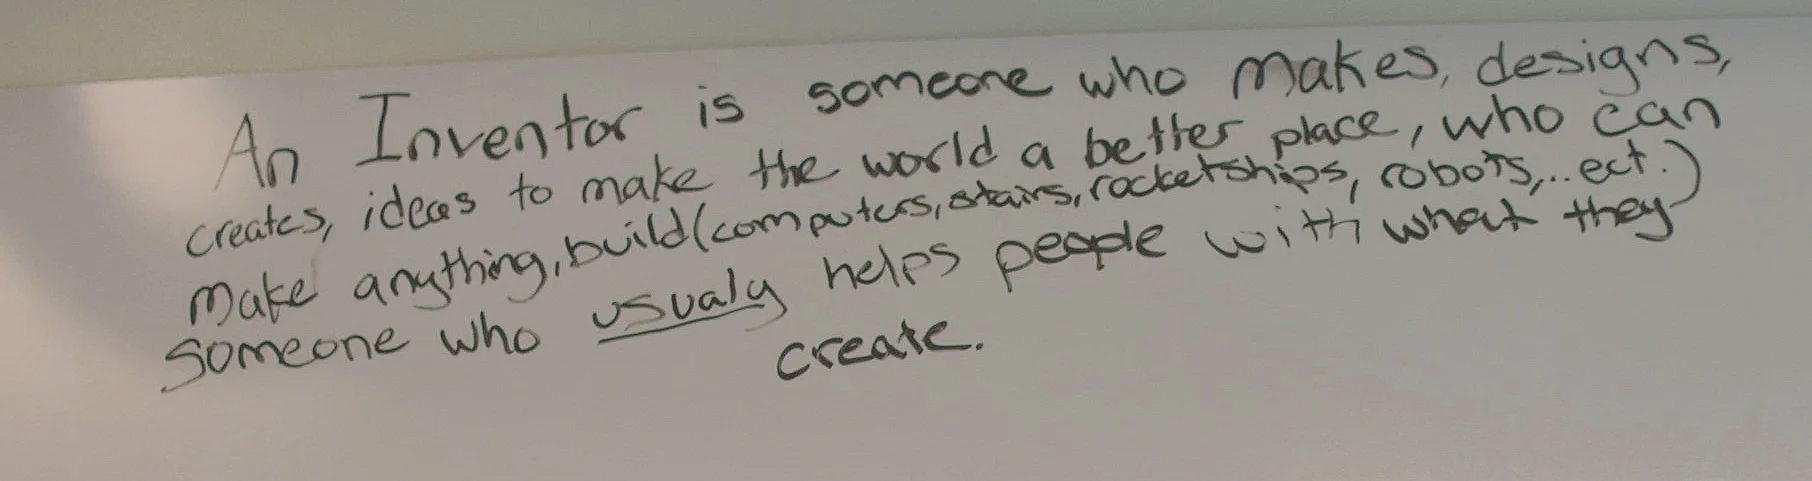 An Inventor is someone who makes, designs,
creates, ideas to make the world a better place, who can
make anything, build (computers, stairs, rocketships, robots,... ect.)
someone who usualy helps people with what they
create.